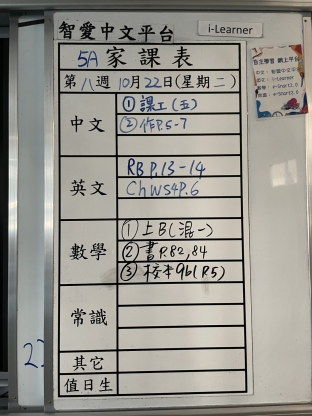 智愛中文平台
i-Learner
5A 家課表
第八週 10月22日(星期二)
中文
①課工(五)
②作P.5-7
英文
RB P.13-14
Ch WS4P.6
數學
①上B(混一)
②書P.82,84
③校本9b(P.5)
常識
其它
值日生
自主學習 網上平台